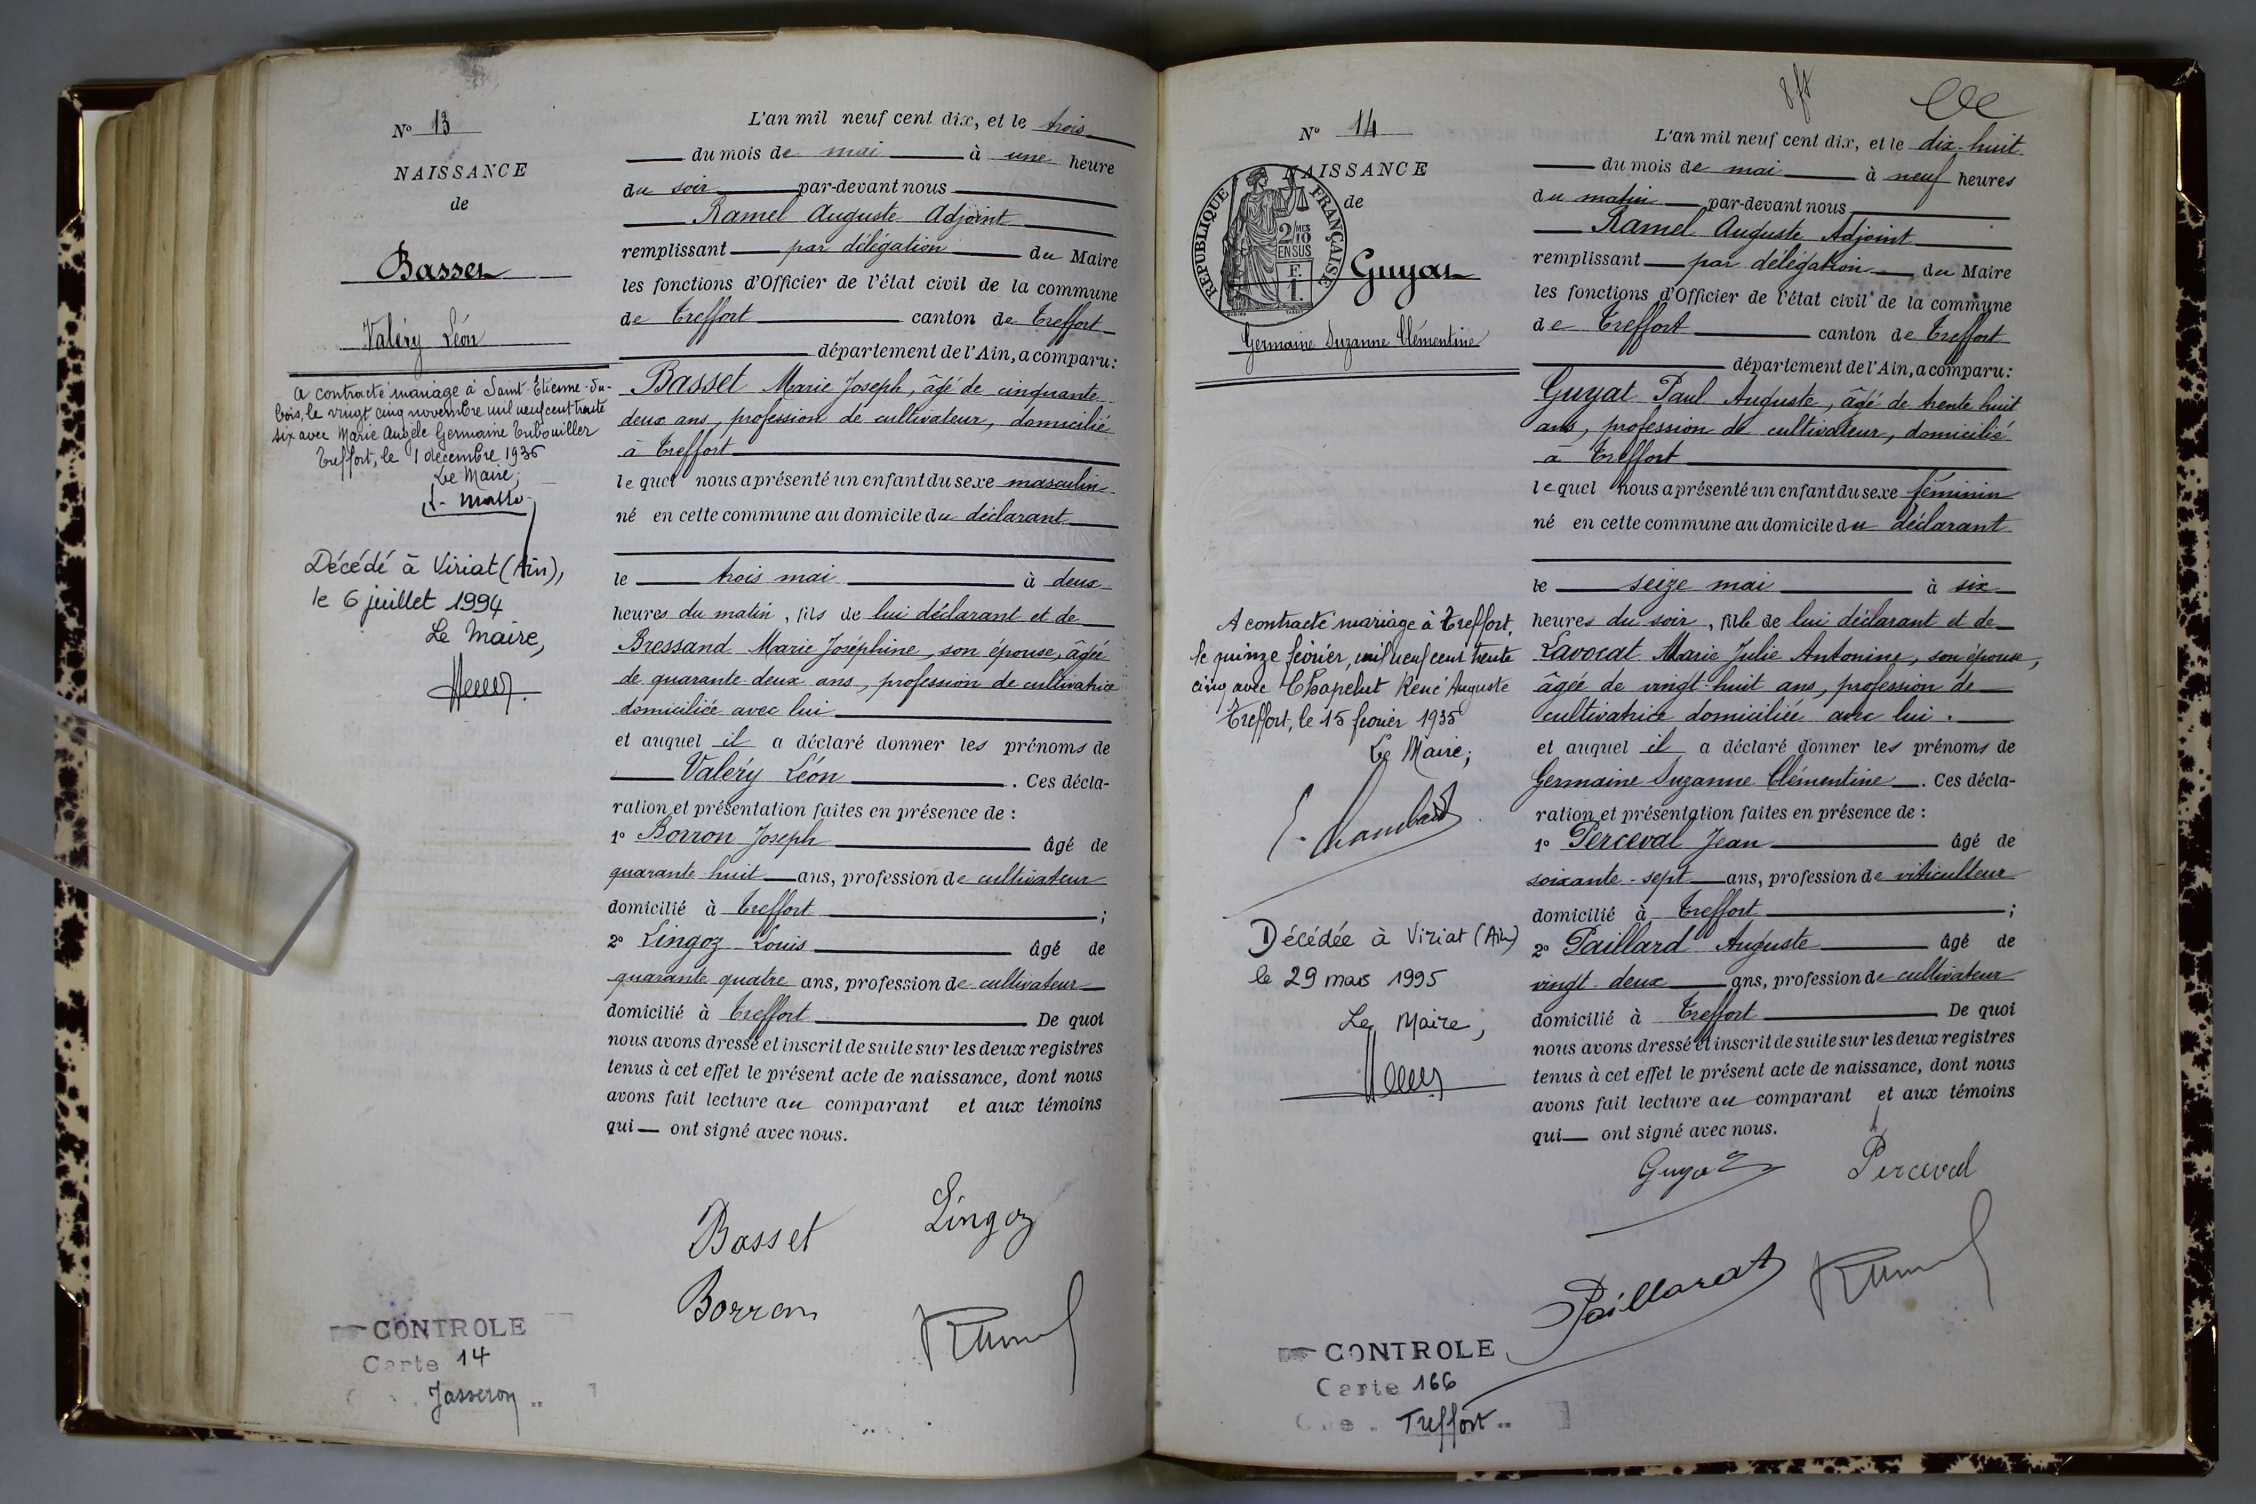 N° 13
NAISSANCE
de
Basset
Valéry Léon
A contracté mariage à Saint-Etienne-du-
bois, le vingt cinq novembre mil neuf cent trente
six avec Marie Angèle Germaine
Treffort, le 1 décembre 1936
Le Maire,
Décédé à Viriat (Ain),
le 6 juillet 1994
Le Maire,
L'an mil neuf cent dix, et le trois
du mois de mai à une heure
du soir par-devant nous
Ramel Auguste Adjoint
remplissant par délégation du Maire
les fonctions d'Officier de l'état civil de la commune
de Treffort canton de Treffort
département de l'Ain, a comparu:
Basset Marie Joseph, âgé de cinquante
deux ans, profession de cultivateur, domicilié
à Treffort
lequel nous a présenté un enfant du sexe masculin
né en cette commune au domicile du déclarant
le trois mai à deux
heures du matin, fils de lui déclarant et de
Bressand Marie Joséphine, son épouse, âgée
de quarante-deux ans, profession de cultivatrice
domiciliée avec lui
et auquel il a déclaré donner les prénoms de
Valéry Léon . Ces décla-
ration et présentation faites en présence de :
1° Borron Joseph âgé de
quarante huit ans, profession de cultivateur
domicilié à Treffort ;
2° Lingoz Louis âgé de
quarante quatre ans, profession de cultivateur
domicilié à Treffort De quoi
nous avons dressé et inscrit de suite sur les deux registres
tenus à cet effet le présent acte de naissance, dont nous
avons fait lecture au comparant et aux témoins
qui ont signé avec nous.
Basset
Lingoz
Borron
Ramel
CONTROLE
Carte 14
Jasseron
N° 14
NAISSANCE
de
REPUBLIQUE FRANÇAISE
2/10 MES
EN SUS
Guyat
Germaine Suzanne Clémentine
A contracté mariage à Treffort,
le quinze février, mil neuf cent trente
cinq avec Chapelut René Auguste
Treffort, le 15 février 1935
Le Maire;
Décédée à Viriat (Ain)
le 29 mars 1995
Le Maire,
L'an mil neuf cent dix, et le dix-huit
du mois de mai à neuf heures
du matin par-devant nous
Ramel Auguste Adjoint
remplissant par délégation du Maire
les fonctions d'Officier de l'état civil de la commune
de Treffort canton de Treffort
département de l'Ain, a comparu:
Guyat Paul Auguste, âgé de trente huit
ans, profession de cultivateur, domicilié
à Treffort
lequel nous a présenté un enfant du sexe féminin
né en cette commune au domicile du déclarant
le seize mai à six
heures du soir, fille de lui déclarant et de
Lavocat Marie Julie Antonine, son épouse,
âgée de vingt-huit ans, profession de
cultivatrice domiciliée avec lui.
et auquel il a déclaré donner les prénoms de
Germaine Suzanne Clémentine . Ces décla-
ration et présentation faites en présence de :
1° Perceval Jean âgé de
soixante-sept ans, profession de viticulteur
domicilié à Treffort ;
2° Paillard Auguste âgé de
vingt-deux ans, profession de cultivateur
domicilié à Treffort De quoi
nous avons dressé et inscrit de suite sur les deux registres
tenus à cet effet le présent acte de naissance, dont nous
avons fait lecture au comparant et aux témoins
qui ont signé avec nous.
Guyat
Perceval
Paillard
Ramel
CONTROLE
Carte 166
Treffort